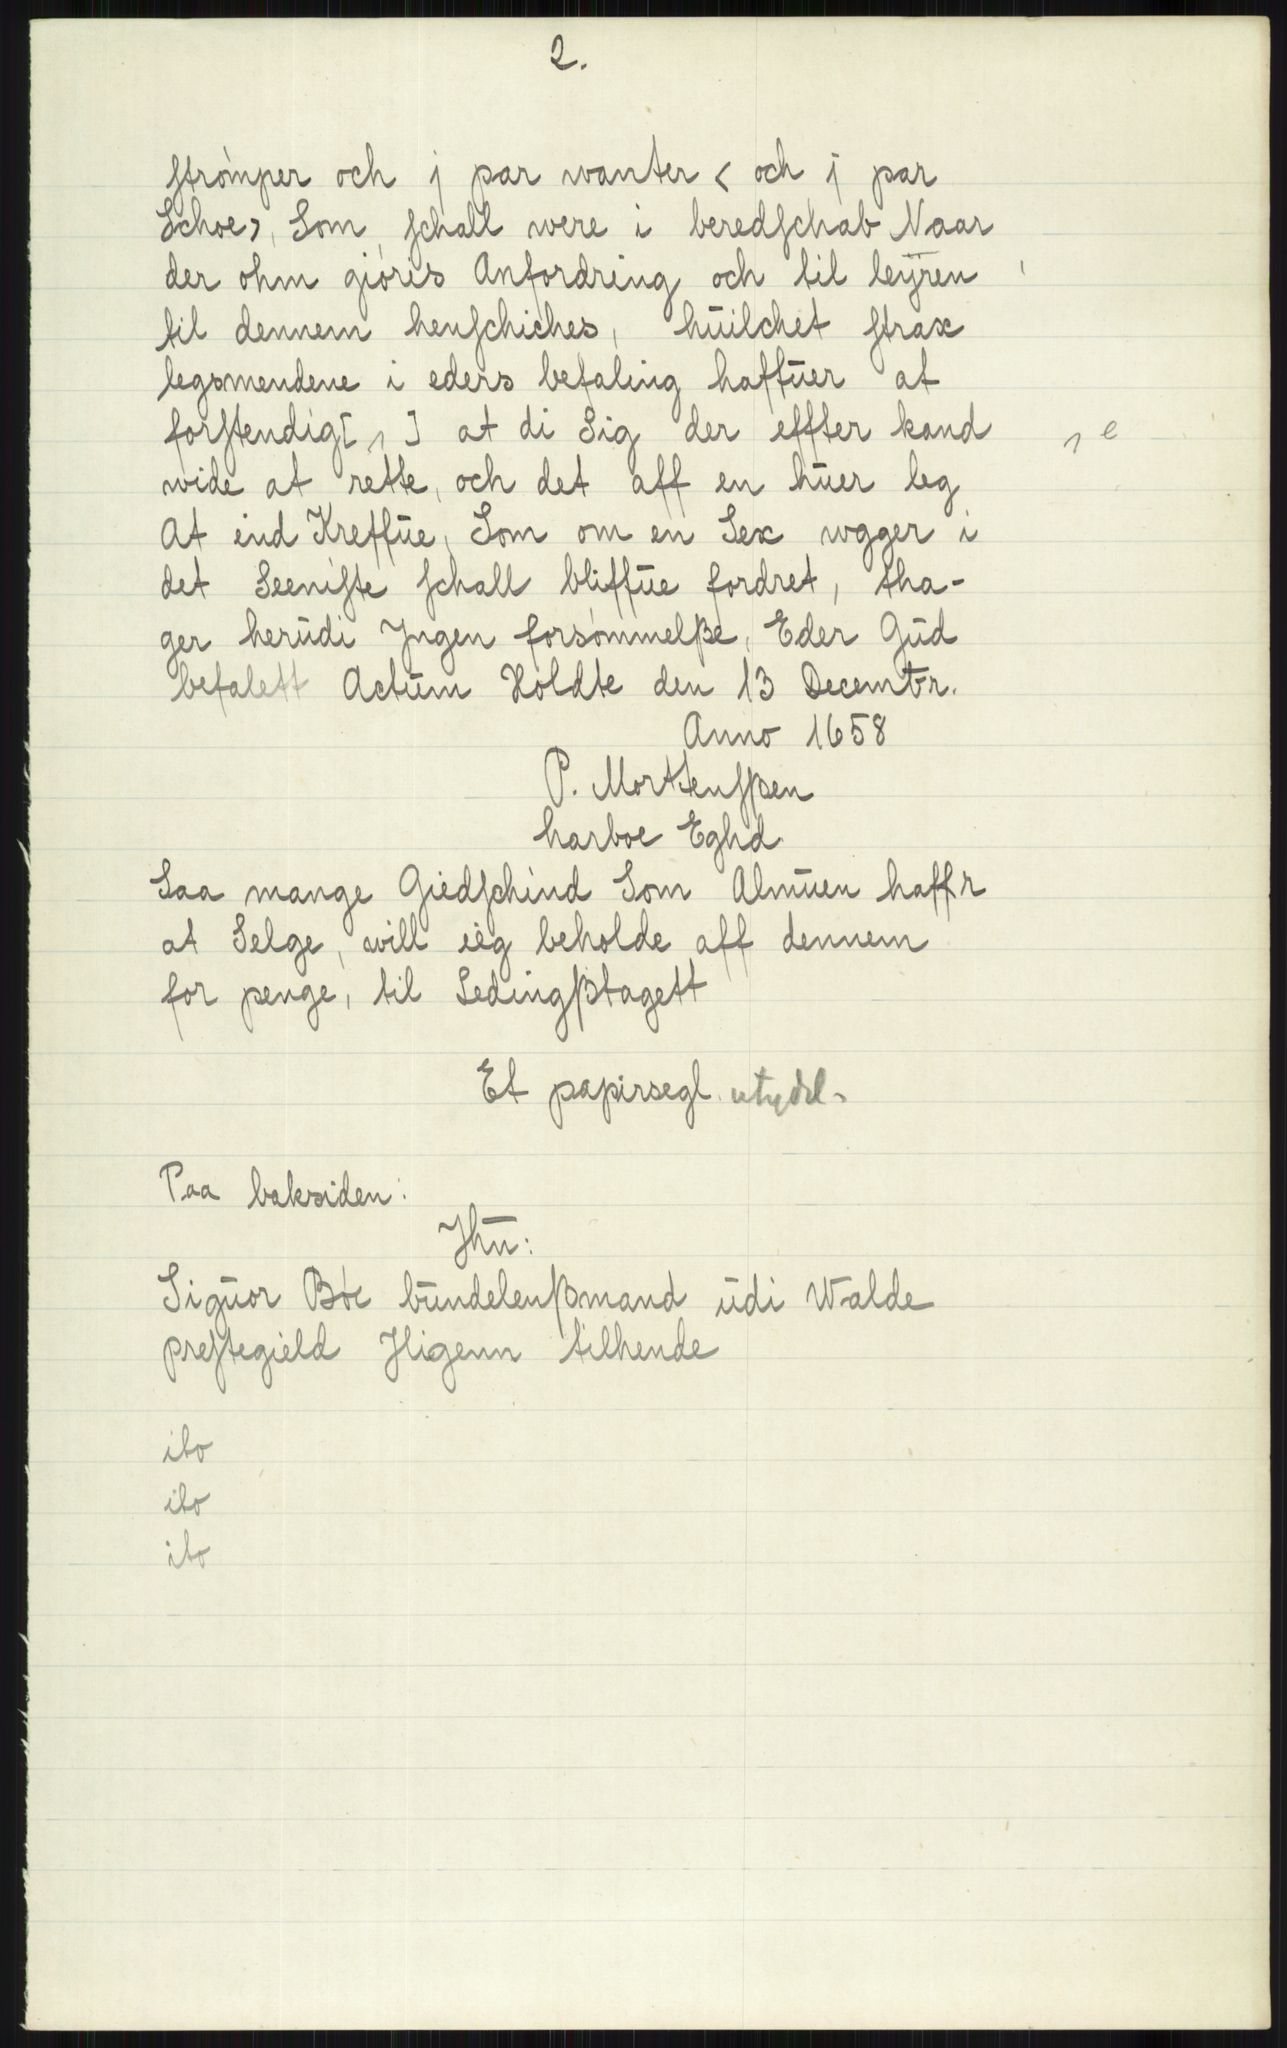 2.
strómper och j par wanter < och j par
Schoe>, Som schall were i beredschab Naar
der ohm gióris Anfordring och til leÿren
til dennem henschiches, hūilchet strax
legsmendene i eders befaling haffūer at
forstendig[,] at di Sig der effter kand , e
wide at rette, och det aff en hūer leg
At eind Kreffūe, Som om en Sex wgger i
det Seeniste schall bliffūe fordret, tha-
ger herūdi Jngen forsómmelße, Eder Gūd
befalett Actūm Holdte den 13 Decembr.
Anno 1658
P. Morttensßen
harboe Eghd.
Saa mange Giedschind Som Almūen haffr
at Selge, will iég beholde aff dennem
for penge, til Ledingßtagett
Et papirsegl. utydel.
Paa baksiden:
Jhū:
Sigūor Bóe būndelenßmand ūdi Walde
prestegield Hligenn tilhende
ito
ito
ito